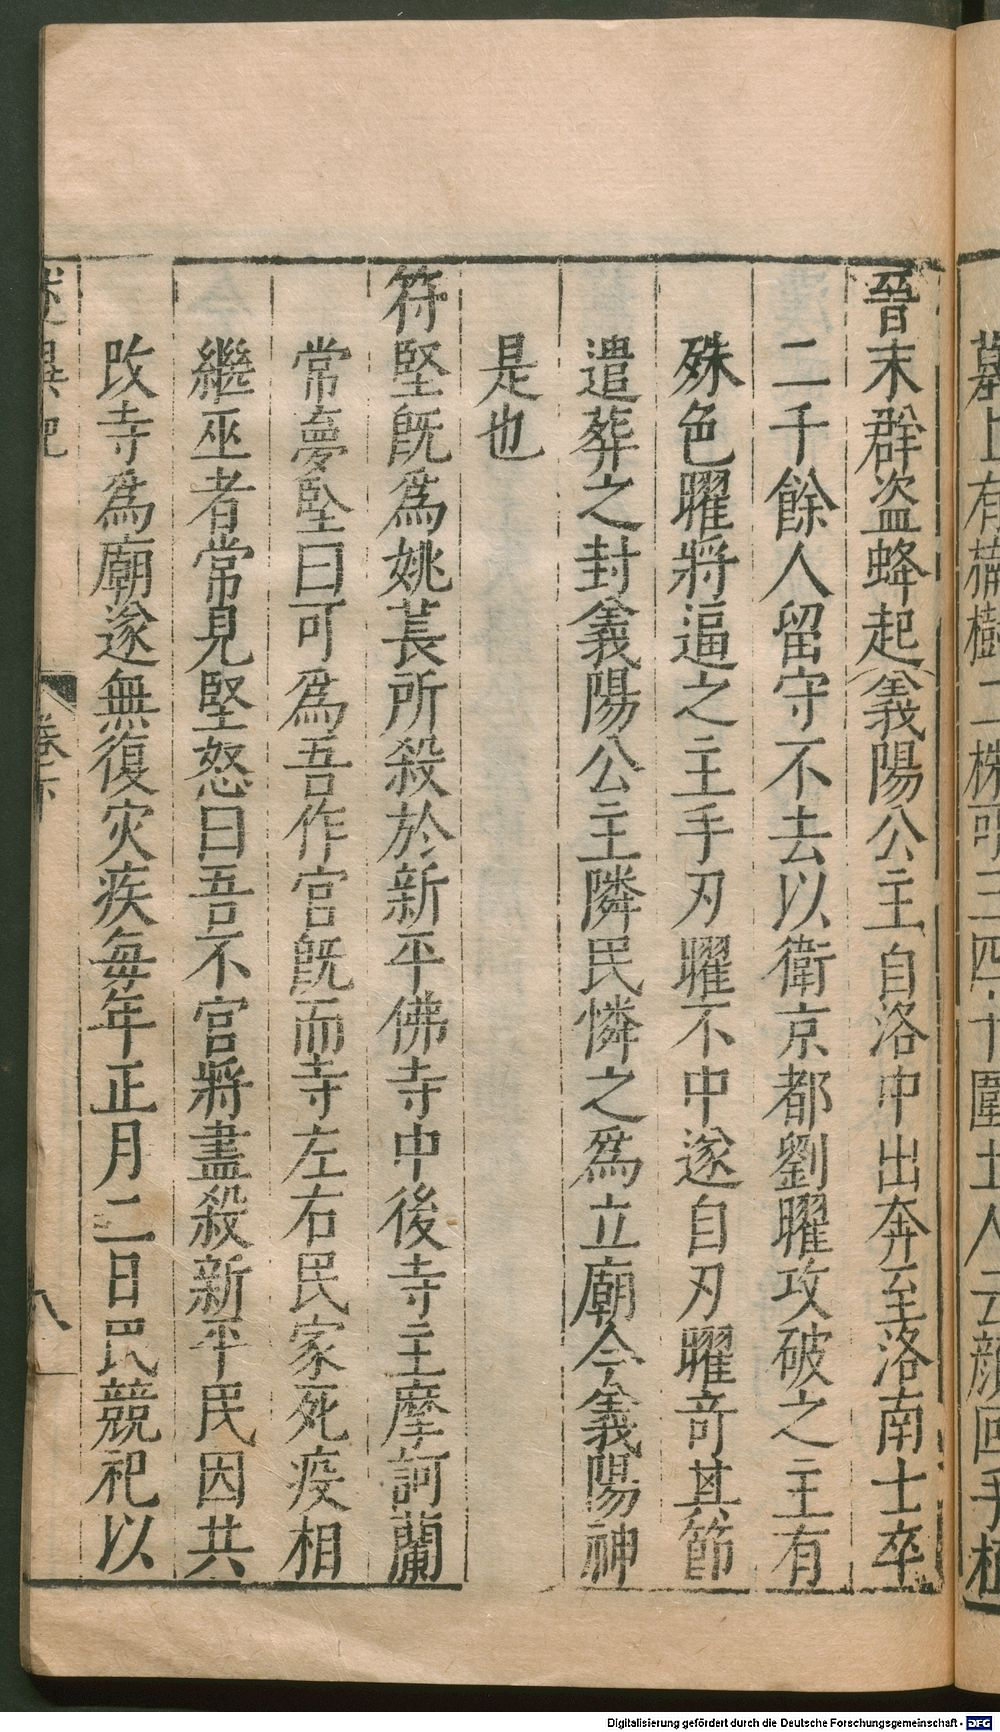 墓上有楠樹二株可三四十圍土人云顔回手植
晉末群盗蜂起義陽公主自洛中出奔至洛南士卒
二千餘人留守不去以衛京都劉曜攻破之主有
殊色曜將逼之主手刃曜不中遂自刃曜奇其節
遣葬之封義陽公主隣民憐之爲立廟今義陽神
是也
符堅旣爲姚萇所殺於新平佛寺中後寺主摩訶蘭
常夢堅曰可爲吾作宮旣而寺左右民家死疫相
繼巫者常見堅怒曰吾不宮將盡殺新平民因共
改寺爲廟遂無復灾疾每年正月二日民競祀以
述異記
卷下
八
Digitalisierung gefördert durch die Deutsche Forschungsgemeinschaft - DFG